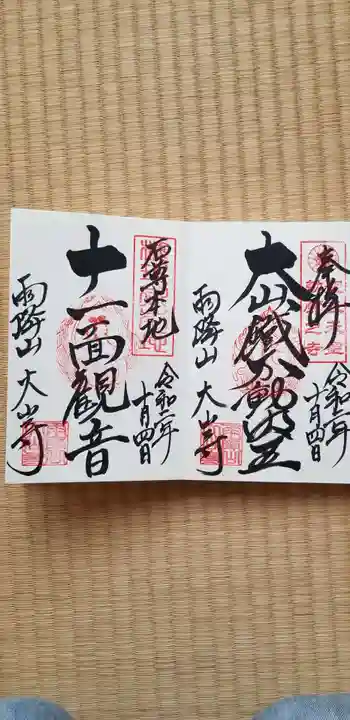 奉拝
大山鐵不動堂
令和二年
十月四日
雨降山 大山寺
石尊本地
十一面観音
令和二年
十月四日
雨降山 大山寺